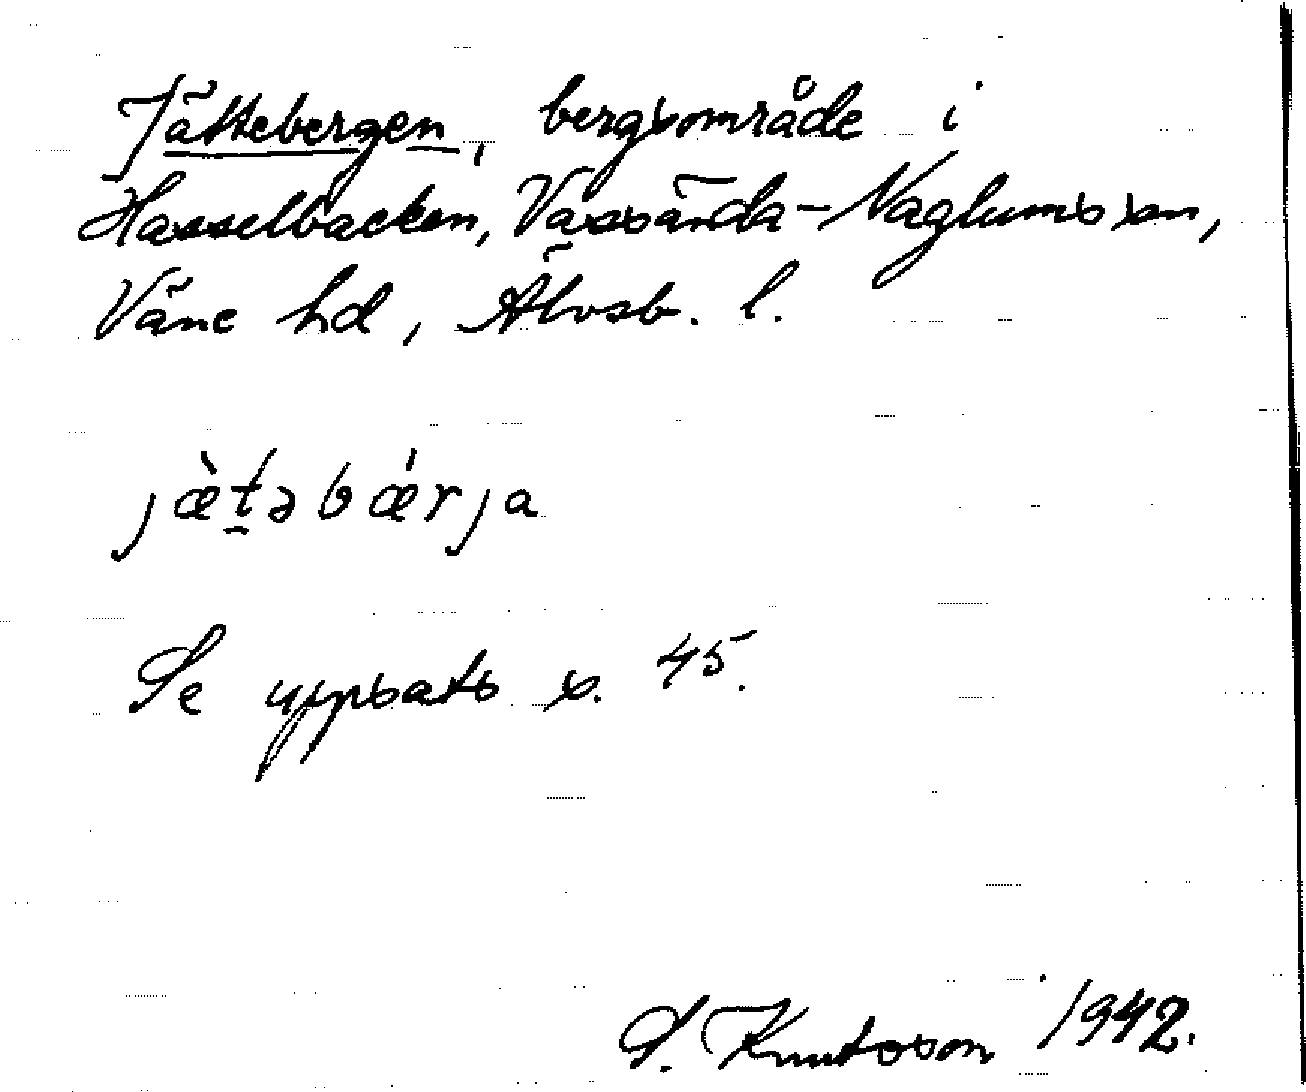 Jättebergen, bergsområde i
Hasselbacken, Vassända-Naglums sn,
Väne hd, Älvsb. l.
jæ̀t̠əbǽrja
Se uppsats s. 45.
S. Knutsson 1942.